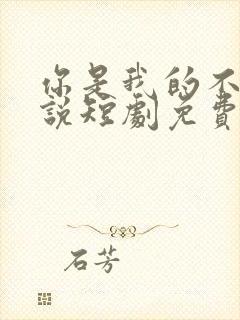 你是我的不
說短劇免費
石芳